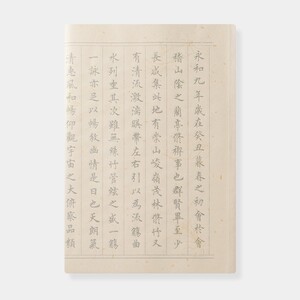 永和九年歲在癸丑暮春之初會於會
稽山陰之蘭亭脩禊事也群賢畢至少
長咸集此地有崇山峻領茂林脩竹又
有清流激湍暎帶左右引以為流觴曲
水列坐其次雖無絲竹管絃之盛一觴
一詠亦足以暢敘幽情是日也天朗氣
清惠風和暢仰觀宇宙之大俯察品類